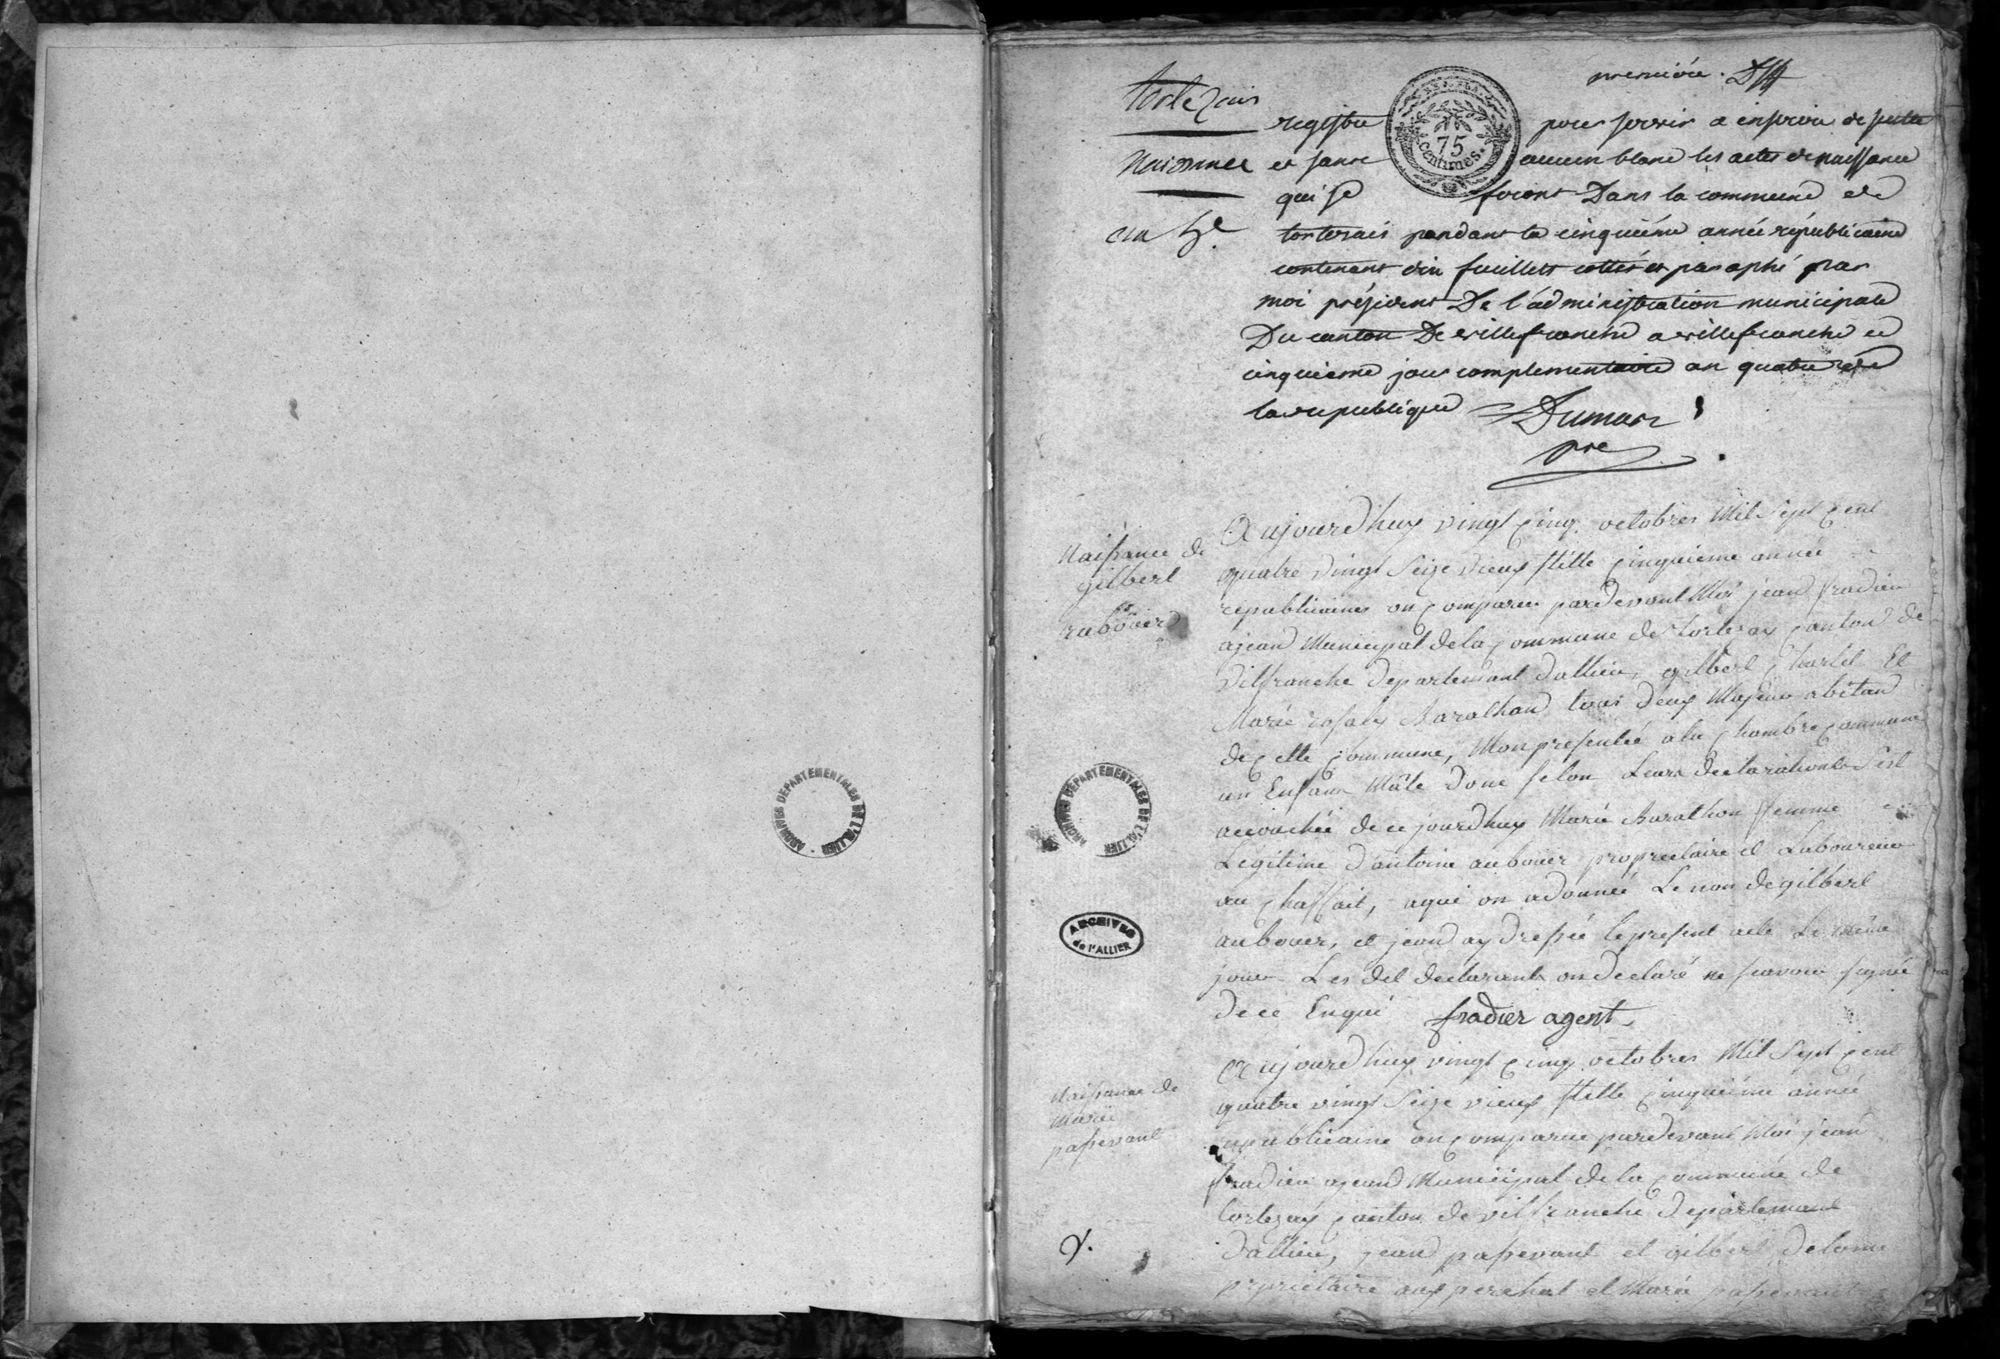 ARCHIVES DÉPARTEMENTALES DE L'ALLIER
première
tortezais
naissances
an 5e
75
centimes.
registre pour servir a inscrire de suitte
et sans aucun blanc les actes de naissance
qui se feront Dans la commune de
tortezais pendant la cinquiéme année républicaine
contenant dix feuillets cottés et paraphé par
moi président De l'administration municipale
Du canton De villefranche a villefranche le
cinquieme jour complementaire an quatre de
la republique Dumas
pre
ARCHIVES DÉPARTEMENTALES DE L'ALLIER
ARCHIVES
de L'ALLIER
Naissance de
gilbert
aubouer
Aujourdhuy vingt cinq octobres Mil Sept Cent
quatre vingt Seize vieux stille cinquieme année
republicaines on comparu pardevant Moi jean fradier
ajean Municipal de la commune de tortezay canton de
vilfranche departemant dallier, gilbert Et
Marie rosaly Barathon tous deux Majeur abitan
de cette commune, Mon presentée a la chambre commune
un Enfant Mâle donc selon Leurs declarations S'est
accouchée de ce jourdhuy Marie Barathon femme
Legitime d'antoine aubouer proprietaire et Laboureur
au chassait, a qui on a donnée Le non de gilbert
aubouer, et jean ay dressée le present acte Le même
jour Les dit declarants on declaré ne scavoir signé
de ce Enqui fradier agent
Naissance de
Marie
passevant
Aujourdhuy vingt cinq octobres Mil Sept Cent
quatre vingt Seize vieux stille cinquieme année
republicaine on comparue pardevant Moi jean
fradier ajean Municipal de la commune de
tortezay canton de vilfranche departemant
dallier, jean passevant et gilbert delome
proprietaire aux perchat et Marie passevant